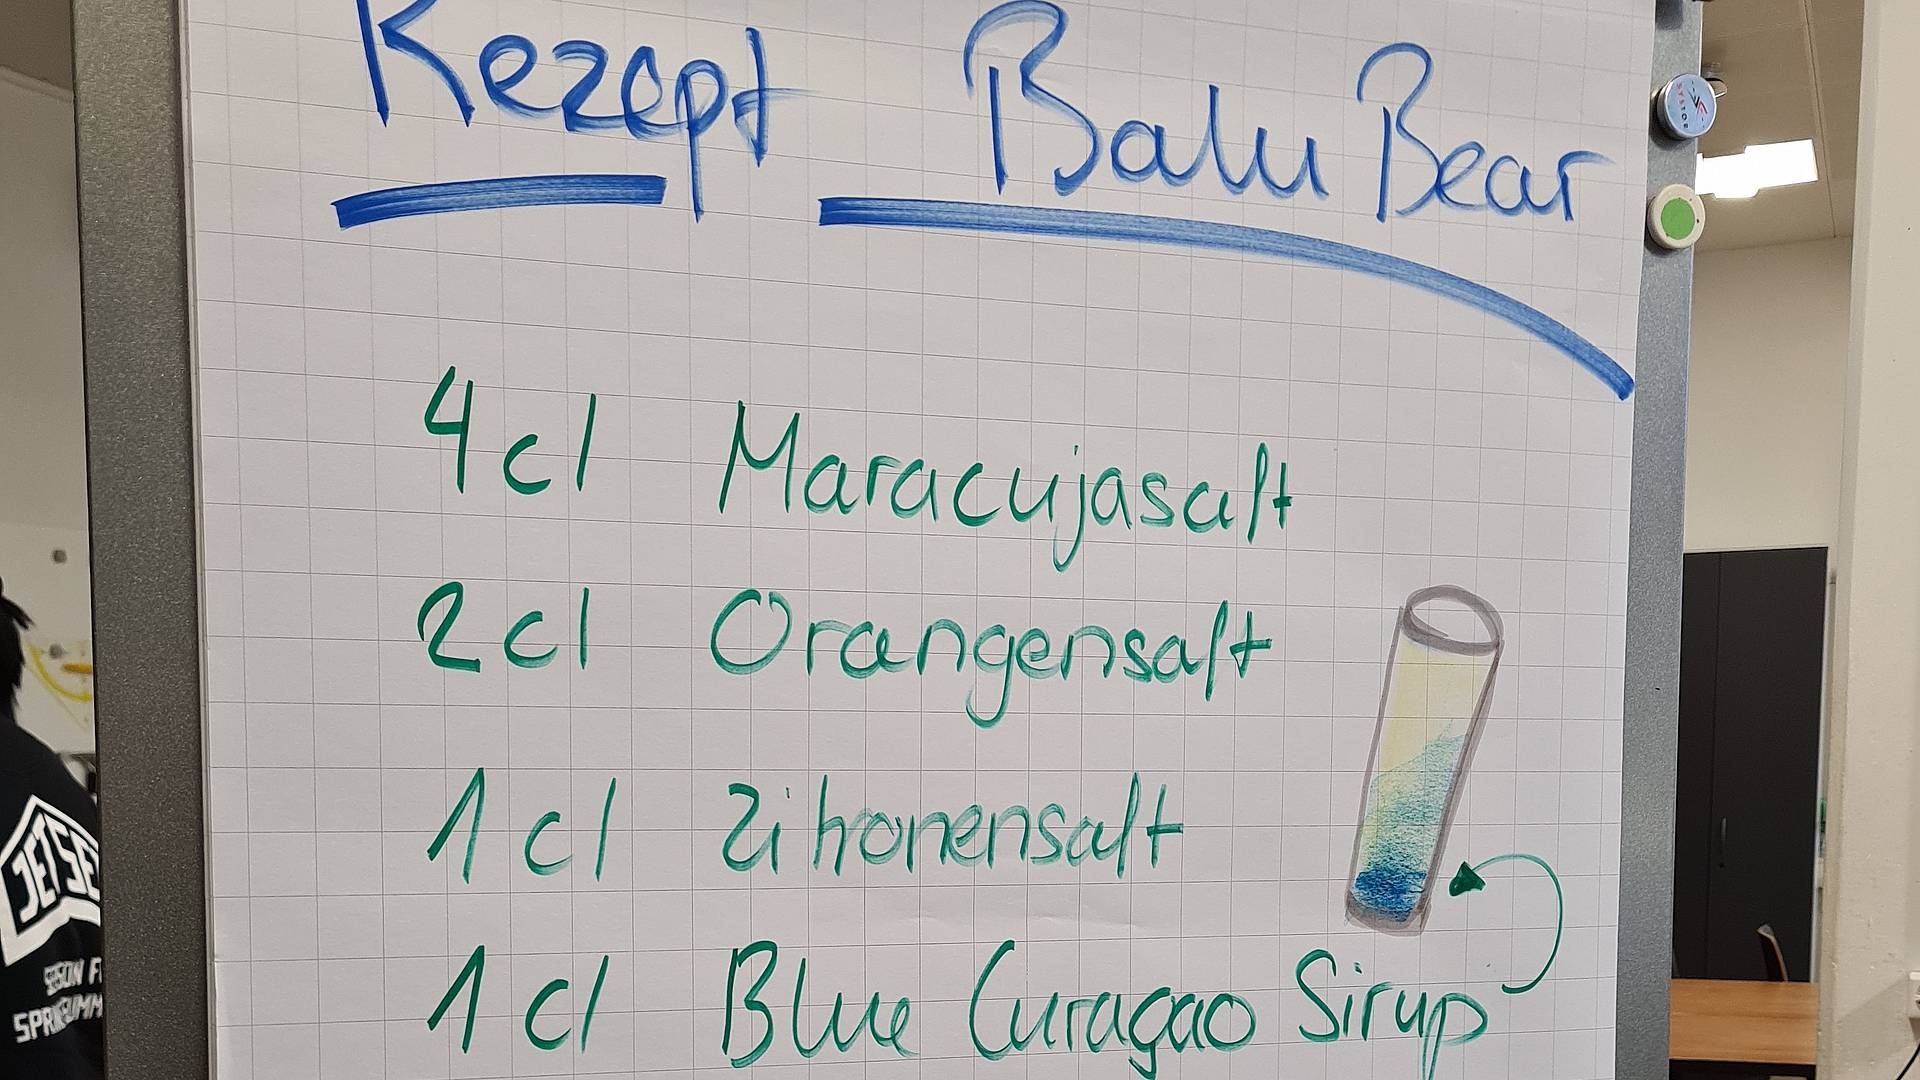 Rezept Balu Bear
4 cl Maracujasaft
2 cl Orangensaft
1 cl Zitronensaft
1 cl Blue Curaçao Sirup
JETSE
SYSTOP